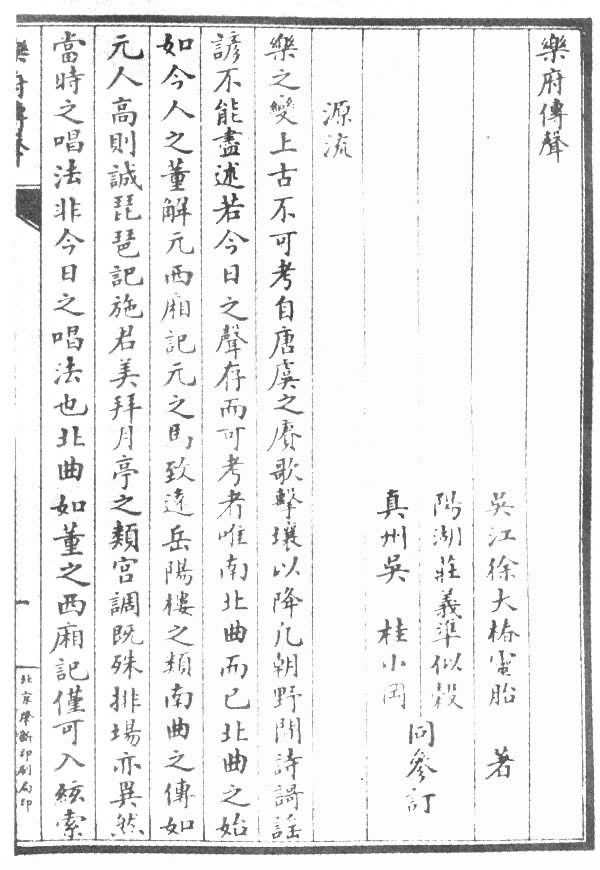 樂府傳聲
吳江徐大椿靈胎 著
陽湖莊義準似穀
真州吳 桂小岡
同參訂
源流
樂之變上古不可考自唐虞之賡歌擊壤以降凡朝野間詩謌謠
諺不能盡述若今日之聲存而可考者唯南北曲而已北曲之始
如今人之董解元西廂記元之馬致遠岳陽樓之類南曲之傳如
元人高則誠琵琶記施君美拜月亭之類宮調既殊排場亦異然
當時之唱法非今日之唱法也北曲如董之西廂記僅可入絃索
樂府傳聲
一
北京印刷局印